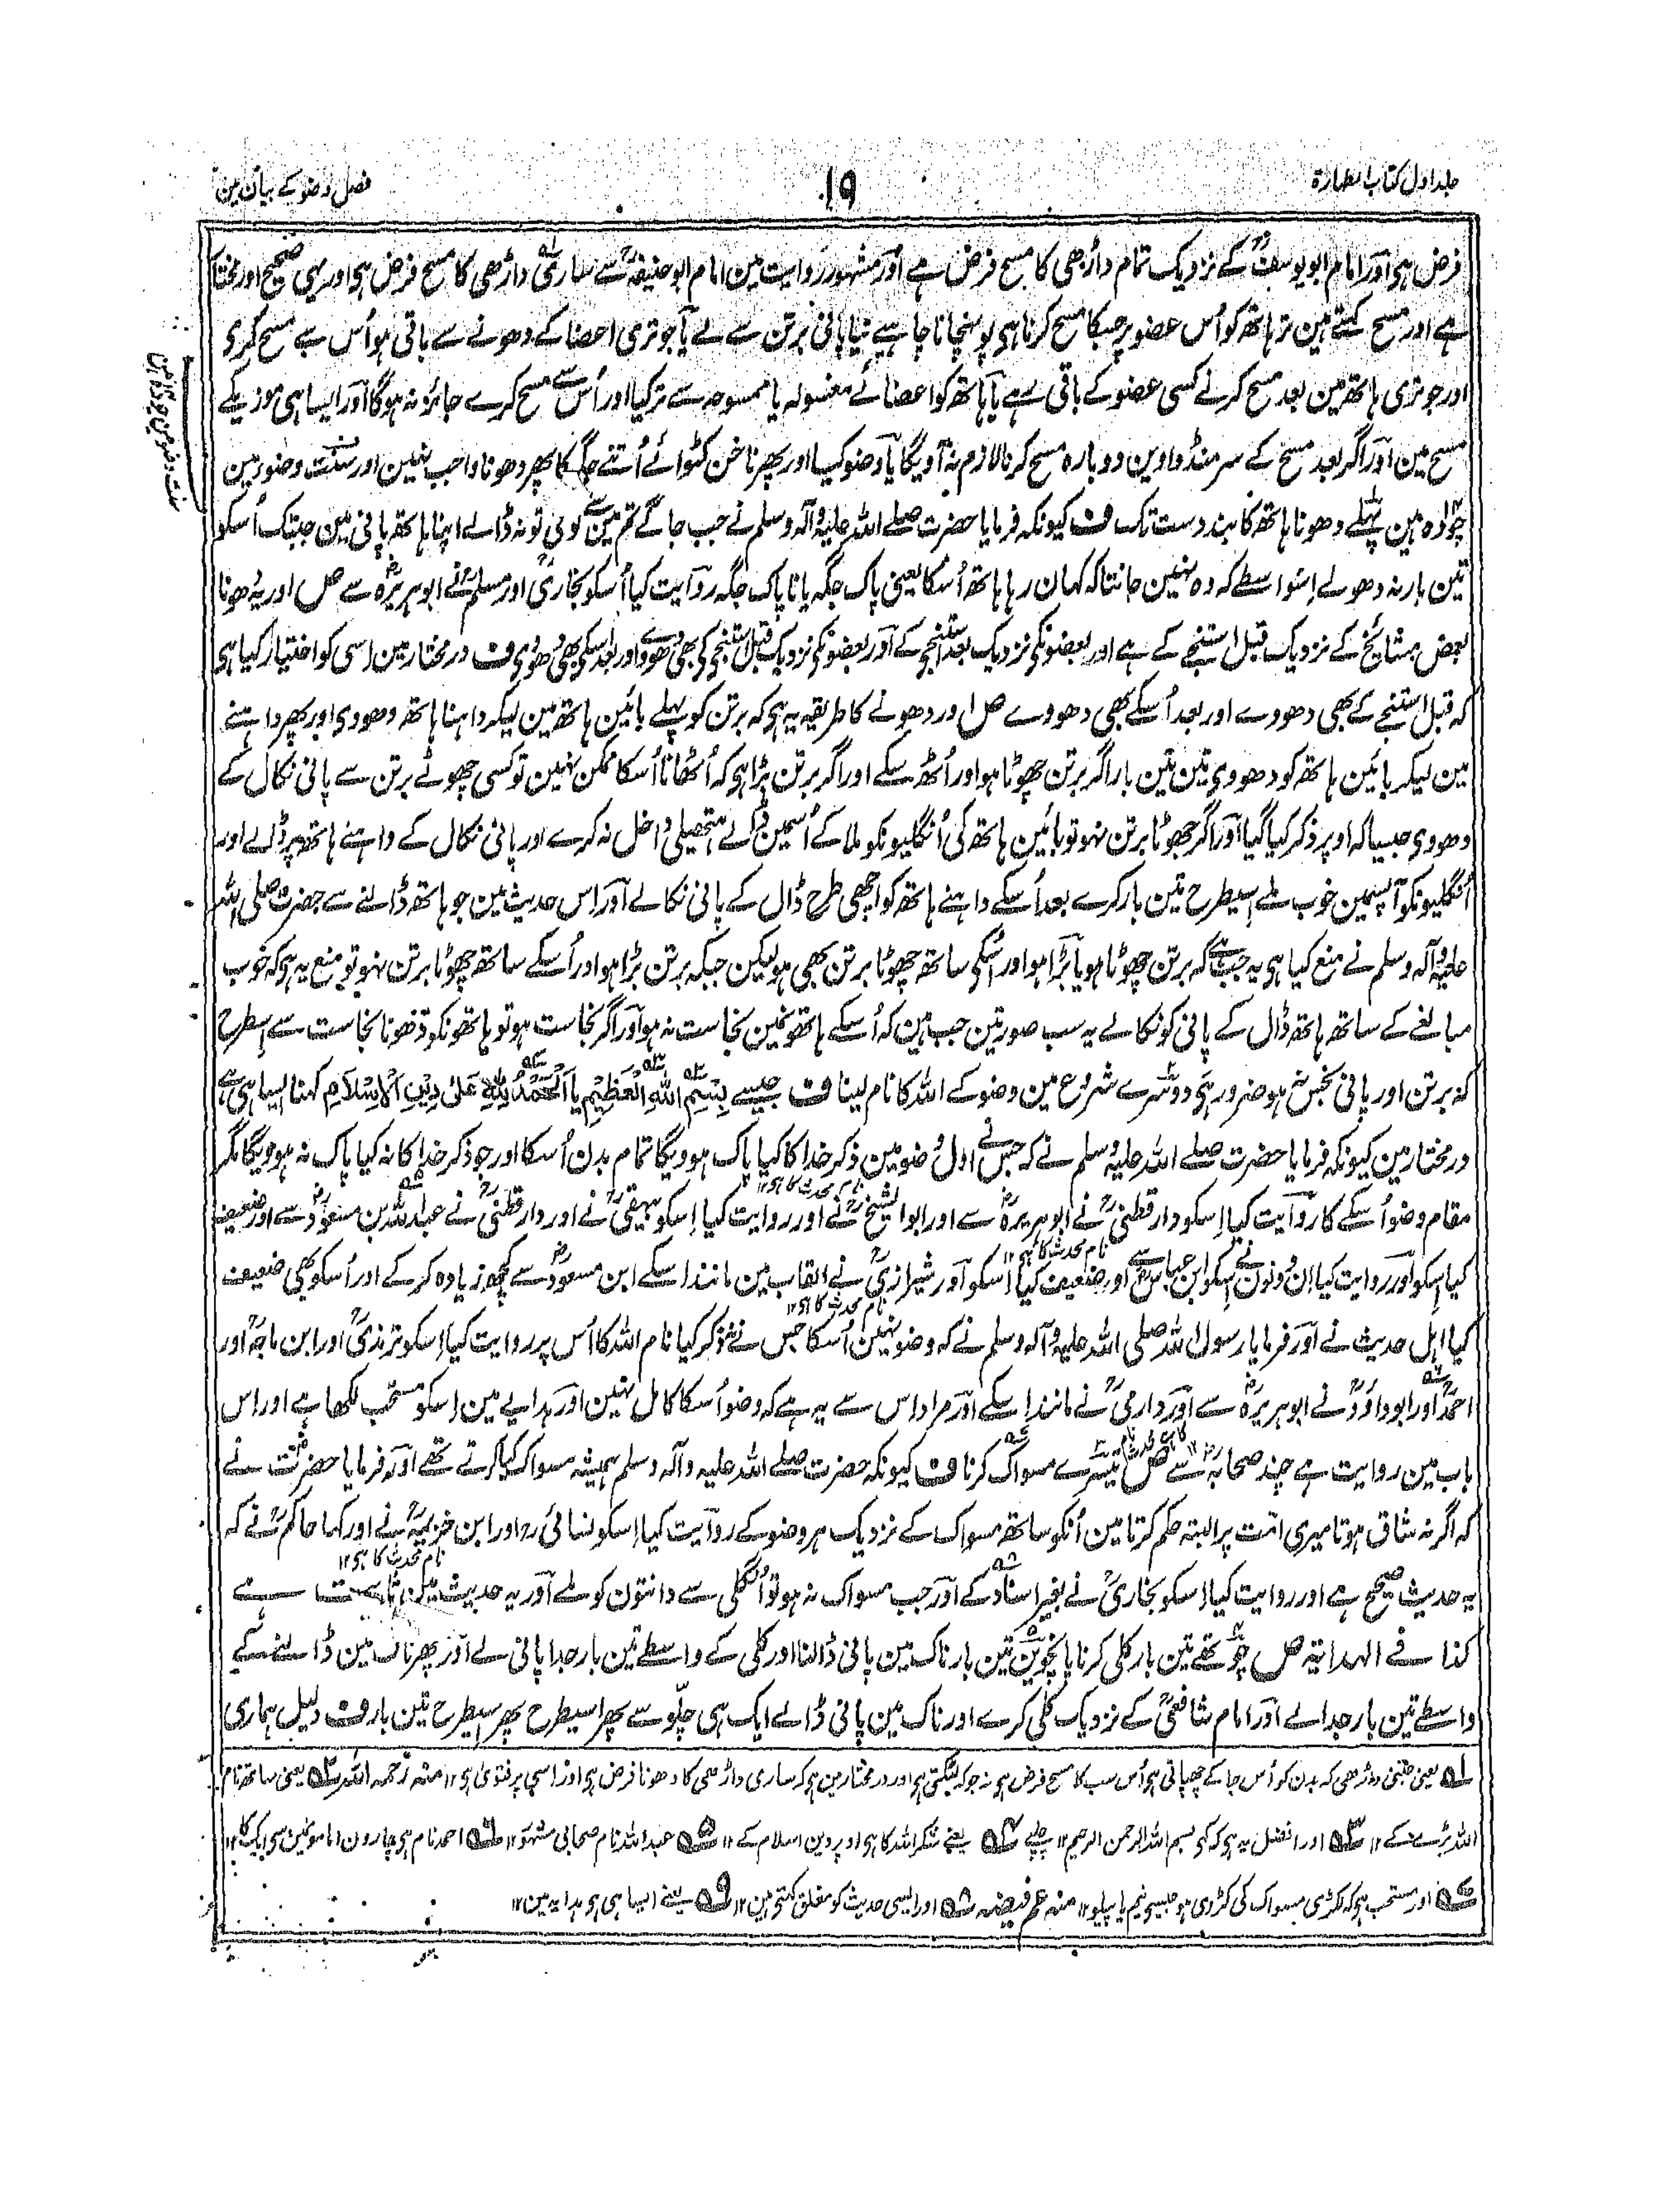 جلد اول کتاب الطہارۃ
۱۹
فصل وضو کے بیان مین
فرض ہی اور امام ابو یوسفؒ کے نزدیک تمام داڑھی کا مسح فرض ہے اور مشہور روایت مین امام ابو حنیفہؒ سے ساری داڑھی کا مسح فرض ہی اور یہی صحیح اور مختار
ہے اور مسح کہتے ہین تر ہاتھ کو اُس عضو پر جسکا مسح کرنا ہی پونہچانا چاہیے نیا پانی برتن سے لے یا جو تری اعضا کے دھونے سے باقی ہو اُس سے مسح کری
اور جو تری ہاتھ مین بعد مسح کرنے کسی عضو کے باقی رہے یا ہاتھ کو اعضائے مغسولہ یا ممسوحہ سے تر کیا اور اُس سے مسح کرے جائز نہ ہوگا اور ایسا ہی موزیکے
مسح مین اور اگر بعد مسح کے سر منڈواوین دوبارہ مسح کرنا لازم نہ آویگا یا وضو کیا اور پھر ناخن کٹوائے اُتنے جگہ کا پھر دھونا واجب نہین اور سنت وضو مین
چودہ ہین پہلے دھونا ہاتھ کا بند دست تک ف کیونکہ فرمایا حضرت صلے اللہ علیہ وآلہ وسلم نے جب جاگے تم مین سے کوئی تو نہ ڈالے اپنا ہاتھ پانی مین جبتک اُسکو
تین بار نہ دھولے اسواسطے کہ وہ نہین جانتا کہ کہان رہا ہاتھ اُسکا یعنی پاک جگہ یا ناپاک جگہ روایت کیا اُسکو بخاریؒ اور مسلمؒ نے ابوہریرہؓ سے ص اور یہ دھونا
بعض مشائخ کے نزدیک قبل استنجے کے ہے اور بعضونکی نزدیک بعد استنجے کے اور بعضونکی نزدیک قبل استنجے کی بھی دھووے اور بعد اسکی بھی دھووی ف در مختار مین اسی کو اختیار کیا ہی
کہ قبل استنجے کے بھی دھووے اور بعد اُسکے بھی دھووے ص اور دھونے کا طریقہ یہ ہی کہ برتن کو پہلے بائین ہاتھ مین لیکر داہنا ہاتھ دھووی اور پھر داہنے
مین لیکر بائین ہاتھ کو دھووی تین تین بار اگر برتن چھوٹا ہو اور اُٹھ سکے اور اگر برتن بڑا ہی کہ اُٹھانا اُسکا ممکن نہین تو کسی چھوٹے برتن سے پانی نکال کے
دھووی جیسا کہ اوپر ذکر کیا گیا اور اگر چھوٹا برتن نہو تو بائین ہاتھ کی اُنگلیونکو ملا کے اُسمین ڈالے ہتھیلی داخل نہ کرے اور پانی نکال کے داہنے ہاتھ پر ڈالے اور
اُنگلیونکو آپسمین خوب ملے اسیطرح تین بار کرے بعد اُسکے داہنے ہاتھ کو اچھی طرح ڈال کے پانی نکالے اور اس حدیث مین جو ہاتھ ڈالنے سے حضرت صلی اللہ
علیہ وآلہ وسلم نے منع کیا ہی یہ جب ہے کہ برتن چھوٹا ہو یا بڑا ہو اور اُسکی ساتھ چھوٹا برتن بھی ہو لیکن جبکہ برتن بڑا ہو اور اُسکے ساتھ چھوٹا برتن نہو تو منع یہ ہی کہ خوب
مبالغے کے ساتھ ہاتھ ڈال کے پانی کو نکالے یہ سب صورتین جب ہین کہ اُسکے ہاتھونمین نجاست نہ ہو اور اگر نجاست ہو تو ہاتھونکو دھونا نجاست سے اسطرح
کہ برتن اور پانی نجس نہو ضرور ہی دوسرے شروع مین وضو کے اللہ کا نام لینا ف جیسے بِسْمِ اللّٰہِ الْعَظِیْمِ یا اَلْحَمْدُ لِلّٰہِ عَلیٰ دِیْنِ الْاِسْلَامِ کہنا ایسا ہی ہے
در مختار مین کیونکہ فرمایا حضرت صلے اللہ علیہ وسلم نے کہ جس نے اول وضو مین ذکر خدا کا کیا پاک ہوویگا تمام بدن اُسکا اور جو ذکر خدا کا نہ کیا پاک نہ ہوویگا مگر
مقام وضو اُسکے کا روایت کیا اسکو دارقطنیؒ نے ابوہریرہؓ سے اور ابو الشیخؒ نے اور روایت کیا اسکو بیہقیؒ نے اور دارقطنیؒ نے عبداللہ بن مسعودؓ سے اور ضعیف
نام محدث کا ہی ۱۲
کیا اسکو اور روایت کیا اِن دونون نے اسکو ابن عباسؓ سے اور ضعیف کیا اسکو اور شیرازیؒ نے القاب مین مانند اسکے ابن مسعودؓ سے کچھ زیادہ کرکے اور اُسکو بھی ضعیف
نام محدث کا ہی ۱۲
کیا اہل حدیث نے اور فرمایا رسول اللہ صلی اللہ علیہ وآلہ وسلم نے کہ وضو نہین اُسکا جس نے نہ ذکر کیا نام اللہ کا اُس پر روایت کیا اسکو ترمذیؒ اور ابن ماجہؒ اور
نام محدث کا ہی ۱۲
احمدؒ اور ابو داودؒ نے ابوہریرہؓ سے اور دارمیؒ نے مانند اسکے اور مراد اس سے یہ ہے کہ وضو اُسکا کامل نہین اور ہدایے مین اِسکو مستحب لکھا ہے اور اس
باب مین روایت ہے چند صحابہؓ سے ص تیسرے مسواک کرنا ف کیونکہ حضرت صلے اللہ علیہ وآلہ وسلم ہمیشہ مسواک کیا کرتے تھے اور فرمایا حضرت نے
کہ اگر نہ شاق ہوتا میری امت پر البتہ حکم کرتا مین اُنکو ساتھ مسواک کے نزدیک ہر وضو کے روایت کیا اسکو نسائیؒ اور ابن خزیمہؒ نے اور کہا حاکمؒ نے کہ
نام محدث کا ہی ۱۲
یہ حدیث صحیح ہے اور روایت کیا اسکو بخاریؒ نے بغیر اسناد کے اور جب مسواک نہ ہو تو اُنگلی سے دانتون کو ملے اور یہ حدیث مین ثابت ہے
کذا فے الہدایۃ ص چوتھے تین بار کلی کرنا پانچوین تین بار ناک مین پانی ڈالنا اور کلی کے واسطے تین بار جدا پانی لے اور پھر ناک مین ڈالنے کے
واسطے تین بار جدا لے اور امام شافعیؒ کے نزدیک کلی کرے اور ناک مین پانی ڈالے ایک ہی چلّو سے پھر اسیطرح پھر اسیطرح تین بار ف دلیل ہماری
سنت وضو مین چودہ ہین
۱ یعنی جتنی داڑھی کہ بدن کو اُس جا کے چھپاتی ہو اُس سب کا مسح فرض ہی نہ جو کہ لٹکتی ہو اور در مختار مین ہی کہ ساری داڑھی کا دھونا فرض ہی اور اسی پر فتویٰ ہی ۱۲ منہ رحمہ اللہ ۲ یعنی ساتھ نام
اللہ بڑے کے ۱۲ ۳ اور افضل یہ ہی کہ کہی بسم اللہ الرحمن الرحیم ۱۲ چلپے ۴ یعنے شکر اللہ کا ہی اوپر دین اسلام کے ۱۲ ۵ عبداللہ نام صحابی مشہور ۱۲ ۶ احمد نام ہی چارون امامونمین سی ایک کا ۱۲
۷ اور مستحب ہی کہ لکڑی مسواک کی کڑوی ہو جیسی نیم یا پیلو ۱۲ منہ عم فیضہ ۸ اور ایسی حدیث کو معلق کہتی ہین ۱۲ ۹ یعنے ایسا ہی ہی ہدایہ مین ۱۲